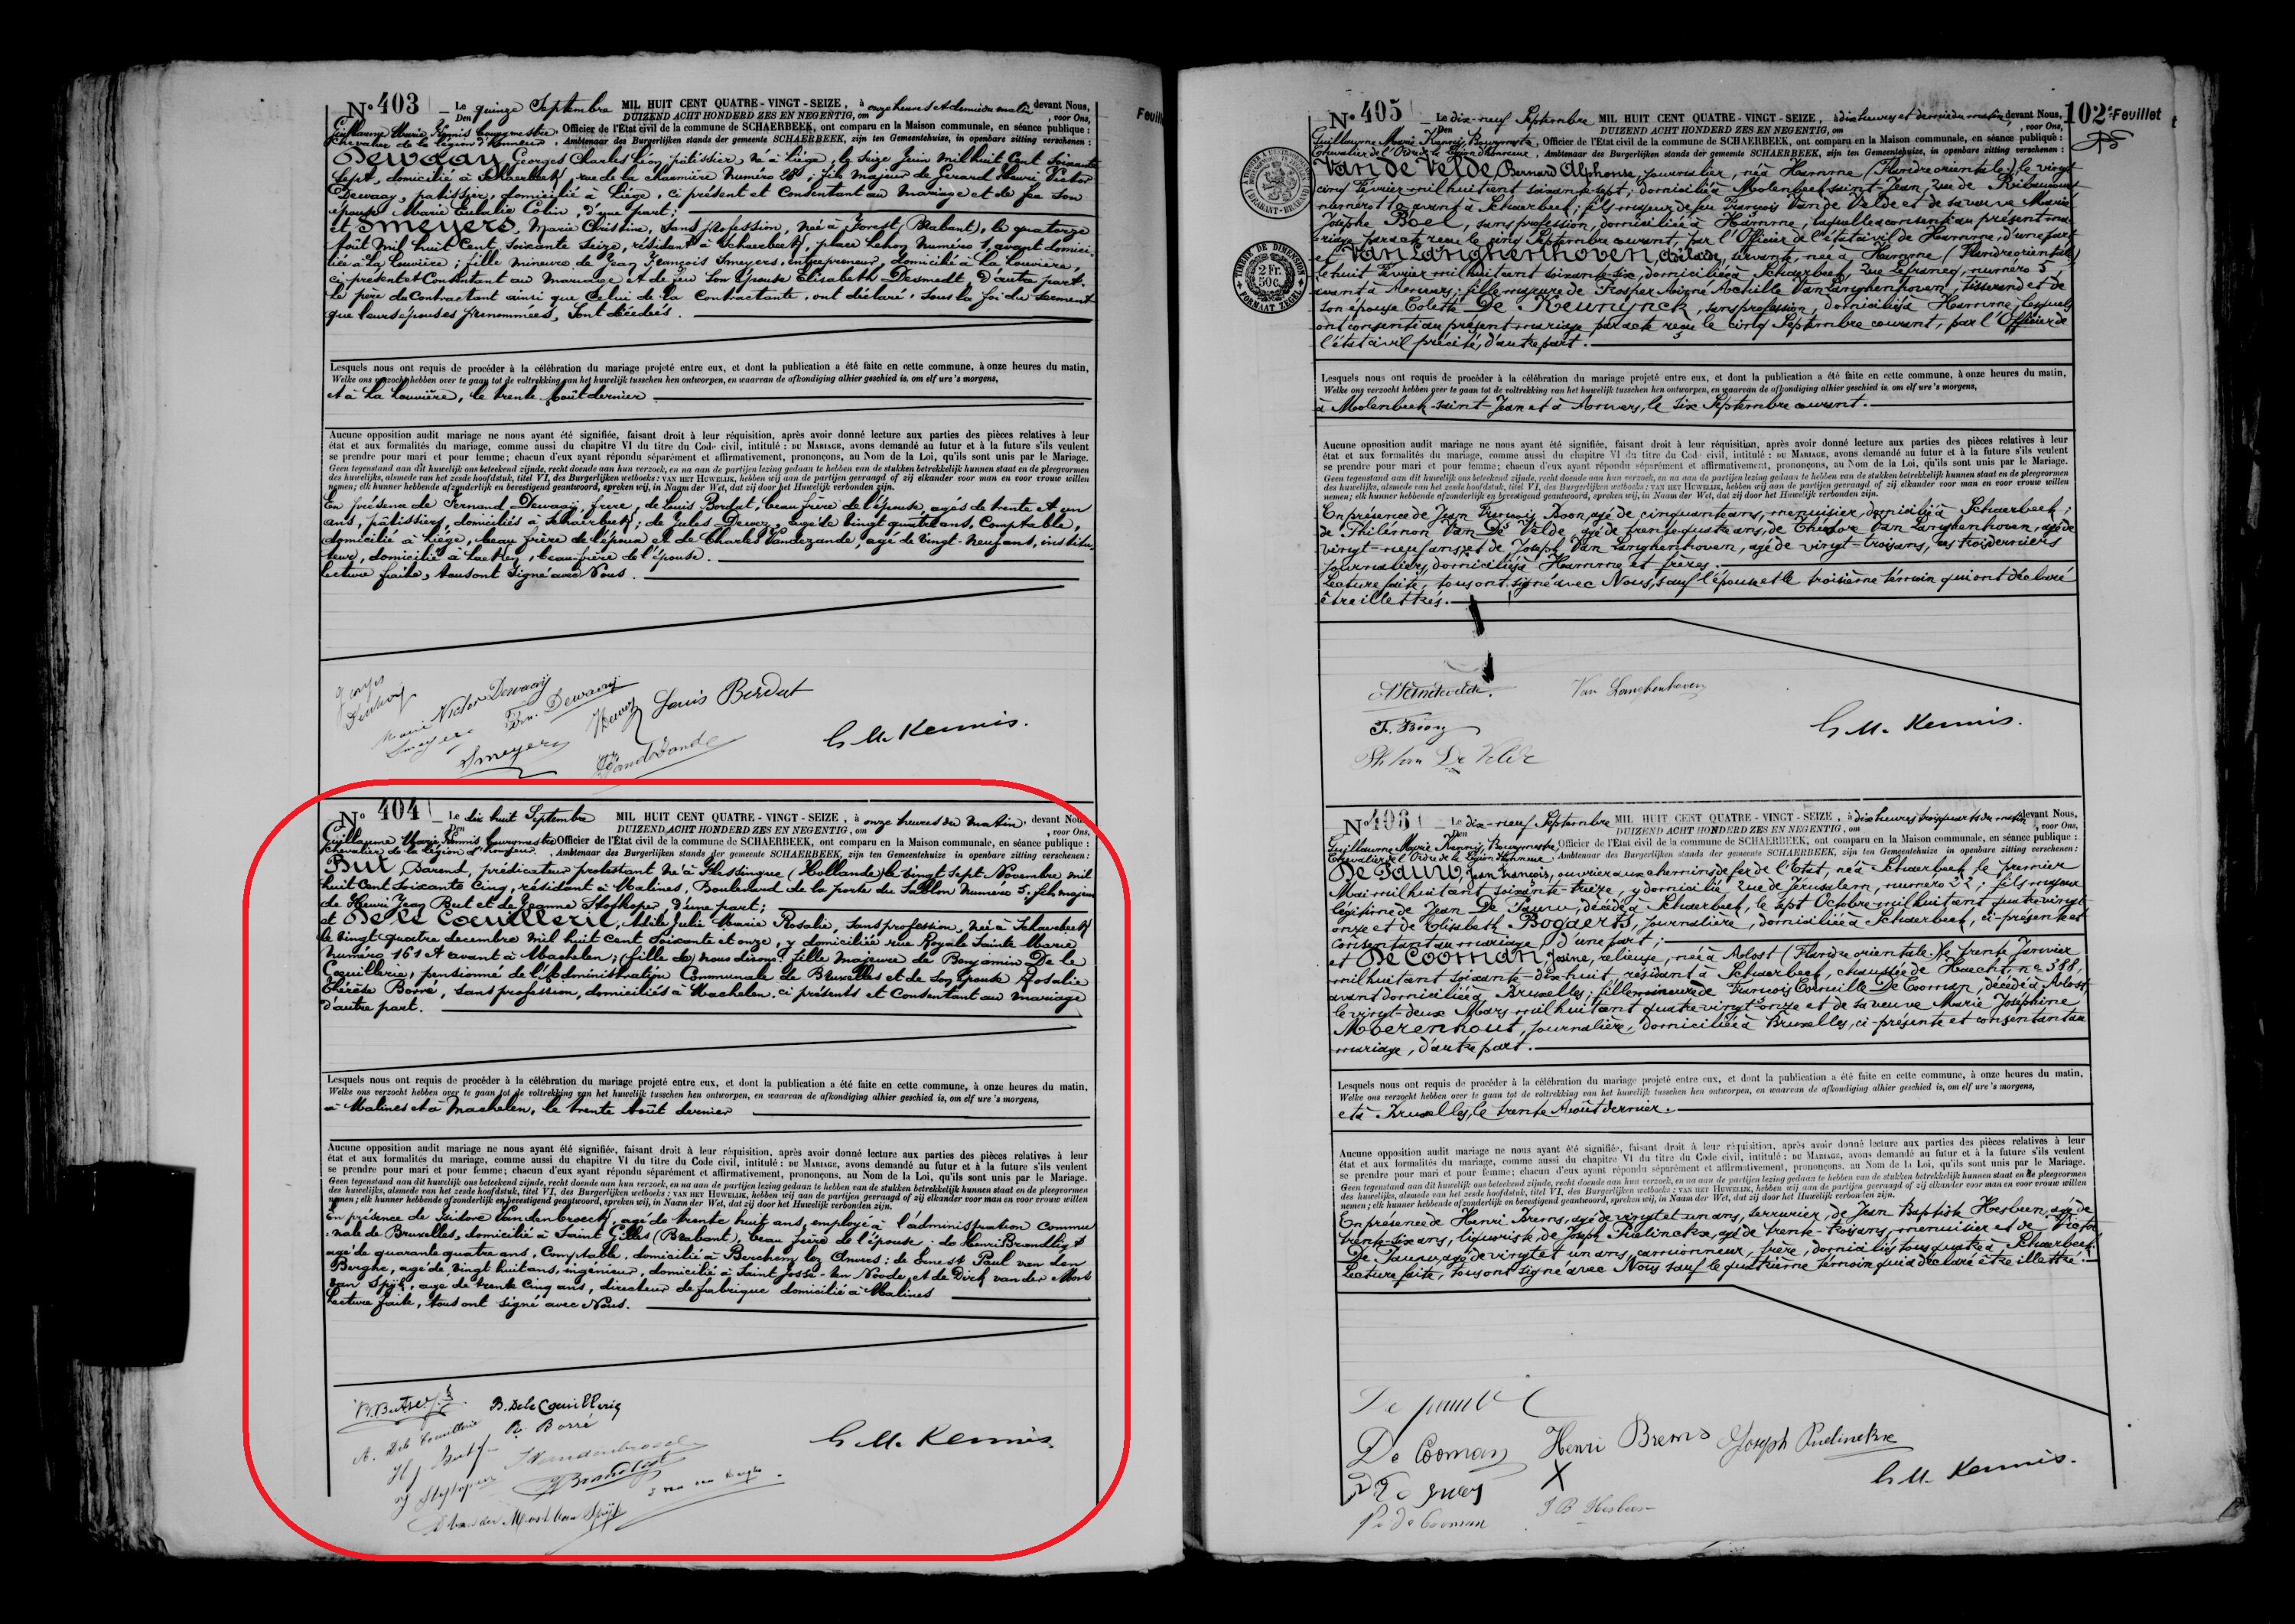 N° 403 Le quinze Septembre MIL HUIT CENT QUATRE-VINGT-SEIZE, à onze heures et demie du matin devant Nous,
Den DUIZEND ACHT HONDERD ZES EN NEGENTIG, om , voor Ons,
Guillaume Marie Kennis bourgmestre Officier de l'Etat civil de la commune de SCHAERBEEK, ont comparu en la Maison communale, en séance publique :
Chevalier de la légion d'honneur , Ambtenaar des Burgerlijken stands der gemeente SCHAERBEEK, zijn ten Gemeentehuize, in openbare zitting verschenen :
Dewaay, Georges Charles Léon, pâtissier né à Liége, le seize Juin mil huit Cent Soixante
sept, domicilié à Schaerbeek, rue de la chaumière Numéro ; fils majeur de Gérard Henri Victor
Dewaay, pâtissier, domicilié à Liége, ci présent et Consentant au mariage et de feu son
épouse Marie Eulalie Colin, d'une part;
et Smeyers, Marie Christine, Sans profession, Née à Forest (Brabant), le quatorze
Août Mil huit Cent Soixante Seize, résidant à Schaerbeek, place Lehon Numéro 1, avant domici-
liée à La Louvière ; fille mineure de Jean François Smeyers, entrepreneur, domicilié à La Louvière,
ci présent et Consentant au Mariage et de feu Son épouse Elisabeth Desmedt, d'autre part.
Le père du Contractant ainsi que Celui de la Contractante, ont déclaré, sous la foi du serment
que leurs épouses prénommées, Sont décédées.
Lesquels nous ont requis de procéder à la célébration du mariage projeté entre eux, et dont la publication a été faite en cette commune, à onze heures du matin,
Welke ons verzocht hebben over te gaan tot de voltrekking van het huwelijk tusschen hen ontworpen, en waarvan de afkondiging alhier geschied is, om elf ure 's morgens,
et à La Louvière, le trente Août dernier
Aucune opposition audit mariage ne nous ayant été signifiée, faisant droit à leur réquisition, après avoir donné lecture aux parties des pièces relatives à leur
état et aux formalités du mariage, comme aussi du chapitre VI du titre du Code civil, intitulé : DU MARIAGE, avons demandé au futur et à la future s'ils veulent
se prendre pour mari et pour femme; chacun d'eux ayant répondu séparément et affirmativement, prononçons, au Nom de la Loi, qu'ils sont unis par le Mariage.
Geen tegenstand aan dit huwelijk ons beteekend zijnde, recht doende aan hun verzoek, en na aan de partijen lezing gedaan te hebben van de stukken betrekkelijk hunnen staat en de pleegvormen
des huwelijks, alsmede van het zesde hoofdstuk, titel VI, des Burgerlijken wetboeks : VAN HET HUWELIJK, hebben wij aan de partijen gevraagd of zij elkander voor man en voor vrouw willen
nemen; elk hunner hebbende afzonderlijk en bevestigend geantwoord, spreken wij, in Naam der Wet, dat zij door het Huwelijk verbonden zijn.
En présence de Fernand Dewaay, frère, de Louis Berdut, beau frère de l'épouse, agés de trente et un
ans, pâtissiers, domiciliés à Schaerbeek; de Jules Dewez, agé de vingt quatre ans, Comptable,
domicilié à Liége, beau frère de l'époux et de Charles Vandezande, agé de Vingt-neuf ans, institu-
teur, domicilié à Laeken, beau-frère de l'épouse.
Lecture faite, tous ont signé avec Nous.
Georges
Dewaay
Marie Smeyers
Victor Dewaay
Fern. Dewaay
Smeyers
JDewez
Vandezande
Louis Berdut
G. M. Kennis.
N° 404 Le dix huit Septembre MIL HUIT CENT QUATRE-VINGT-SEIZE, à onze heures du matin, devant Nous,
Den DUIZEND ACHT HONDERD ZES EN NEGENTIG, om , voor Ons,
Guillaume Marie Kennis bourgmestre Officier de l'Etat civil de la commune de SCHAERBEEK, ont comparu en la Maison communale, en séance publique :
Chevalier de la légion d'honneur. , Ambtenaar des Burgerlijken stands der gemeente SCHAERBEEK, zijn ten Gemeentehuize in openbare zitting verschenen :
But, Barend, prédicateur protestant né à Flessingue (Hollande) le vingt sept Novembre mil
huit Cent Soixante Cinq, résidant à Malines, Boulevard de la porte du Sablon Numéro 5; fils majeur
de Henri Jean But et de Jeanne Stofkoper, d'une part;
et De le Coeuillerie, Adèle Julie Marie Rosalie, Sans profession, née à Schaerbeek
le vingt quatre decembre mil huit Cent Soixante et onze, y domiciliée rue Royale Sainte Marie
Numéro 161 A avant à Machelen; (fille de) nous disons : fille majeure de Benjamin De le
Coeuillerie, pensionné de l'Administration Communale de Bruxelles et de Son épouse Rosalie
Thérèse Borré, sans profession, domiciliés à Machelen, ci présents et Consentant au mariage
d'autre part.
Lesquels nous ont requis de procéder à la célébration du mariage projeté entre eux, et dont la publication a été faite en cette commune, à onze heures du matin,
Welke ons verzocht hebben over te gaan tot de voltrekking van het huwelijk tusschen hen ontworpen, en waarvan de afkondiging alhier geschied is, om elf ure 's morgens,
à Malines et à Machelen, le trente Août dernier
Aucune opposition audit mariage ne nous ayant été signifiée, faisant droit à leur réquisition, après avoir donné lecture aux parties des pièces relatives à leur
état et aux formalités du mariage, comme aussi du chapitre VI du titre du Code civil, intitulé : DU MARIAGE, avons demandé au futur et à la future s'ils veulent
se prendre pour mari et pour femme; chacun d'eux ayant répondu séparément et affirmativement, prononçons, au Nom de la Loi, qu'ils sont unis par le Mariage.
Geen tegenstand aan dit huwelijk ons beteekend zijnde, recht doende aan hun verzoek, en na aan de partijen lezing gedaan te hebben van de stukken betrekkelijk hunnen staat en de pleegvormen
des huwelijks, alsmede van het zesde hoofdstuk, titel VI, des Burgerlijken wetboeks : VAN HET HUWELIJK, hebben wij aan de partijen gevraagd of zij elkander voor man en voor vrouw willen
nemen; elk hunner hebbende afzonderlijk en bevestigend geantwoord, spreken wij, in Naam der Wet, dat zij door het Huwelijk verbonden zijn.
En présence de Isidore Vandenbroeck, agé de trente huit ans, employé à l'administration Commu
nale de Bruxelles, domicilié à Saint Gilles (Brabant), beau frère de l'épouse : de Henri Brandligt
agé de quarante quatre ans, Comptable, domicilié à Berchem lez Anvers : de Ernest Paul van den
Berghe, agé de vingt huit ans, ingénieur, domicilié à Saint Josse-ten Noode, et de Dirk van der Mast
van Spijk, agé de trente Cinq ans, directeur de fabrique domicilié à Malines
Lecture faite, tous ont signé avec Nous.
B. But
B. De le Coeuillerie
A. De le Coeuillerie
R. Borré
H J But
Stofkoper
IVandenbroeck
HBrandligt
D van der Mast van Spijk
G. M. Kennis.
Feuil
N° 405 Le dix-neuf Septembre MIL HUIT CENT QUATRE-VINGT-SEIZE, à dix heures et demie du matin, devant Nous,
Den DUIZEND ACHT HONDERD ZES EN NEGENTIG, om , voor Ons,
102e Feuillet
Guillaume Marie Kennis, Bourgmestre, Officier de l'Etat civil de la commune de SCHAERBEEK, ont comparu en la Maison communale, en séance publique :
Chevalier de l'Ordre de la Légion d'honneur , Ambtenaar des Burgerlijken stands der gemeente SCHAERBEEK, zijn ten Gemeentehuize, in openbare zitting verschenen :
TIMBRE DE DIMENSION
2 Fr. 50 c.
FORMAAT ZEGEL
Van de Velde, Bernard Alphonse, journalier, né à Hamme (Flandre orientale), le vingt
cinq Février mil huit cent soixante-sept; domicilié à Molenbeek-Saint-Jean, rue de Ribaucourt
numéro avant à Schaerbeek; fils majeur de feu François Van de Velde et de sa veuve Marie
Josèphe Boel, sans profession, domiciliée à Hamme, laquelle a consenti au présent ma-
riage par acte reçu le cinq Septembre courant, par l'Officier de l'état civil de Hamme, d'une part
et Van Langhenhoven, servante, née à Hamme (Flandre orientale)
le huit Février mil huit cent soixante-six, domiciliée à Schaerbeek, rue Lefrancq, numéro 5,
avant à Anvers; fille majeure de Prosper Achille Van Langhenhoven, tisserand et de
son épouse Colette De Keunynck, sans profession, domiciliés à Hamme, lesquels
ont consenti au présent mariage par acte reçu le cinq Septembre courant, par l'Officier de
l'état civil précité, d'autre part.
Lesquels nous ont requis de procéder à la célébration du mariage projeté entre eux, et dont la publication a été faite en cette commune, à onze heures du matin,
Welke ons verzocht hebben over te gaan tot de voltrekking van het huwelijk tusschen hen ontworpen, en waarvan de afkondiging alhier geschied is, om elf ure 's morgens,
à Molenbeek-Saint-Jean et à Anvers, le six Septembre courant.
Aucune opposition audit mariage ne nous ayant été signifiée, faisant droit à leur réquisition, après avoir donné lecture aux parties des pièces relatives à leur
état et aux formalités du mariage, comme aussi du chapitre VI du titre du Code civil, intitulé : DU MARIAGE, avons demandé au futur et à la future s'ils veulent
se prendre pour mari et pour femme; chacun d'eux ayant répondu séparément et affirmativement, prononçons, au Nom de la Loi, qu'ils sont unis par le Mariage.
Geen tegenstand aan dit huwelijk ons beteekend zijnde, recht doende aan hun verzoek, en na aan de partijen lezing gedaan te hebben van de stukken betrekkelijk hunnen staat en de pleegvormen
des huwelijks, alsmede van het zesde hoofdstuk, titel VI, des Burgerlijken wetboeks : VAN HET HUWELIJK, hebben wij aan de partijen gevraagd of zij elkander voor man en voor vrouw willen
nemen; elk hunner hebbende afzonderlijk en bevestigend geantwoord, spreken wij, in Naam der Wet, dat zij door het Huwelijk verbonden zijn.
En présence de Jean François Boon, agé de cinquante ans, menuisier, domicilié à Schaerbeek;
de Philémon Van De Velde, agé de trente-quatre ans, de Théodore Van Langhenhoven, agé de
vingt-neuf ans, et de Joseph Van Langhenhoven, agé de vingt-trois ans, ces trois derniers
journaliers, domiciliés à Hamme et frères.
Lecture faite, tous ont signé avec Nous, sauf l'épouse et le troisième témoin qui ont déclaré
être illettrés.
AVandevelde.
Van Langhenhoven
F. Boon
Van De Velde
G. M. Kennis.
N° 406 Le dix-neuf Septembre MIL HUIT CENT QUATRE-VINGT-SEIZE, à dix heures trois quarts du matin devant Nous,
Den DUIZEND ACHT HONDERD ZES EN NEGENTIG, om , voor Ons,
Guillaume Marie Kennis, Bourgmestre Officier de l'Etat civil de la commune de SCHAERBEEK, ont comparu en la Maison communale, en séance publique :
Chevalier de l'Ordre de la Légion d'honneur , Ambtenaar des Burgerlijken stands der gemeente SCHAERBEEK, zijn ten Gemeentehuize, in openbare zitting verschenen :
De Pauw, Jean François, ouvrier aux chemins de fer de l'Etat, né à Schaerbeek le premier
Mai mil huit cent soixante-treize, y domicilié, rue de Jérusalem, numéro 22; fils majeur
légitime de Jean De Pauw, décédé à Schaerbeek, le sept Octobre mil huit cent quatre-vingt
onze et de Elisabeth Bogaerts, journalière, domiciliée à Schaerbeek, ci-présente et
consentant au mariage, d'une part;
et De Cooman, Josine, relieuse, née à Alost (Flandre orientale), le trente Janvier
mil huit cent soixante-dix-huit, résidant à Schaerbeek, chaussée de Haecht, n° 388,
avant domiciliée à Bruxelles; fille mineure de François Corneille De Cooman, décédé à Alost,
le vingt-deux Mars mil huit cent quatre-vingt-onze et de sa veuve Marie Joséphine
Moerenhout, journalière, domiciliée à Bruxelles, ci-présente et consentant au
mariage, d'autre part.
Lesquels nous ont requis de procéder à la célébration du mariage projeté entre eux, et dont la publication a été faite en cette commune, à onze heures du matin,
Welke ons verzocht hebben over te gaan tot de voltrekking van het huwelijk tusschen hen ontworpen, en waarvan de afkondiging alhier geschied is, om elf ure 's morgens,
et à Bruxelles, le trente Août dernier.
Aucune opposition audit mariage ne nous ayant été signifiée, faisant droit à leur réquisition, après avoir donné lecture aux parties des pièces relatives à leur
état et aux formalités du mariage, comme aussi du chapitre VI du titre du Code civil, intitulé : DU MARIAGE, avons demandé au futur et à la future s'ils veulent
se prendre pour mari et pour femme; chacun d'eux ayant répondu séparément et affirmativement, prononçons, au Nom de la Loi, qu'ils sont unis par le Mariage.
Geen tegenstand aan dit huwelijk ons beteekend zijnde, recht doende aan hun verzoek, en na aan de partijen lezing gedaan te hebben van de stukken betrekkelijk hunnen staat en de pleegvormen
des huwelijks, alsmede van het zesde hoofdstuk, titel VI, des Burgerlijken wetboeks : VAN HET HUWELIJK, hebben wij aan de partijen gevraagd of zij elkander voor man en voor vrouw willen
nemen; elk hunner hebbende afzonderlijk en bevestigend geantwoord, spreken wij, in Naam der Wet, dat zij door het Huwelijk verbonden zijn.
En présence de Henri Brems, agé de vingt et un ans, serrurier, de Jean Baptiste Hesbeen, agé de
trente-six ans, liquoriste, de Joseph Puelinckx, agé de trente-trois ans, menuisier et de Victor
De Pauw, agé de vingt et un ans, camionneur, frère, domiciliés tous quatre à Schaerbeek.
Lecture faite, tous ont signé avec Nous sauf le quatrième témoin qui a déclaré être illettré.
De pauw
De Cooman
Henri Brems
Joseph Puelinckx
X
J B Hesbeen
de Cooman
G. M. Kennis.